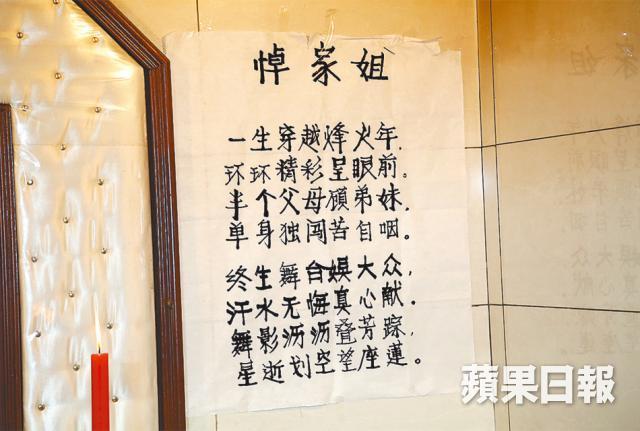 悼家姐
一生穿越烽火年,
环环精彩呈眼前。
半个父母顾弟妹,
单身独闯苦自咽。
终生舞台娱大众,
汗水无悔真心献。
舞影沥沥叠芳踪,
星逝划空望座蓮。
蘋果日報